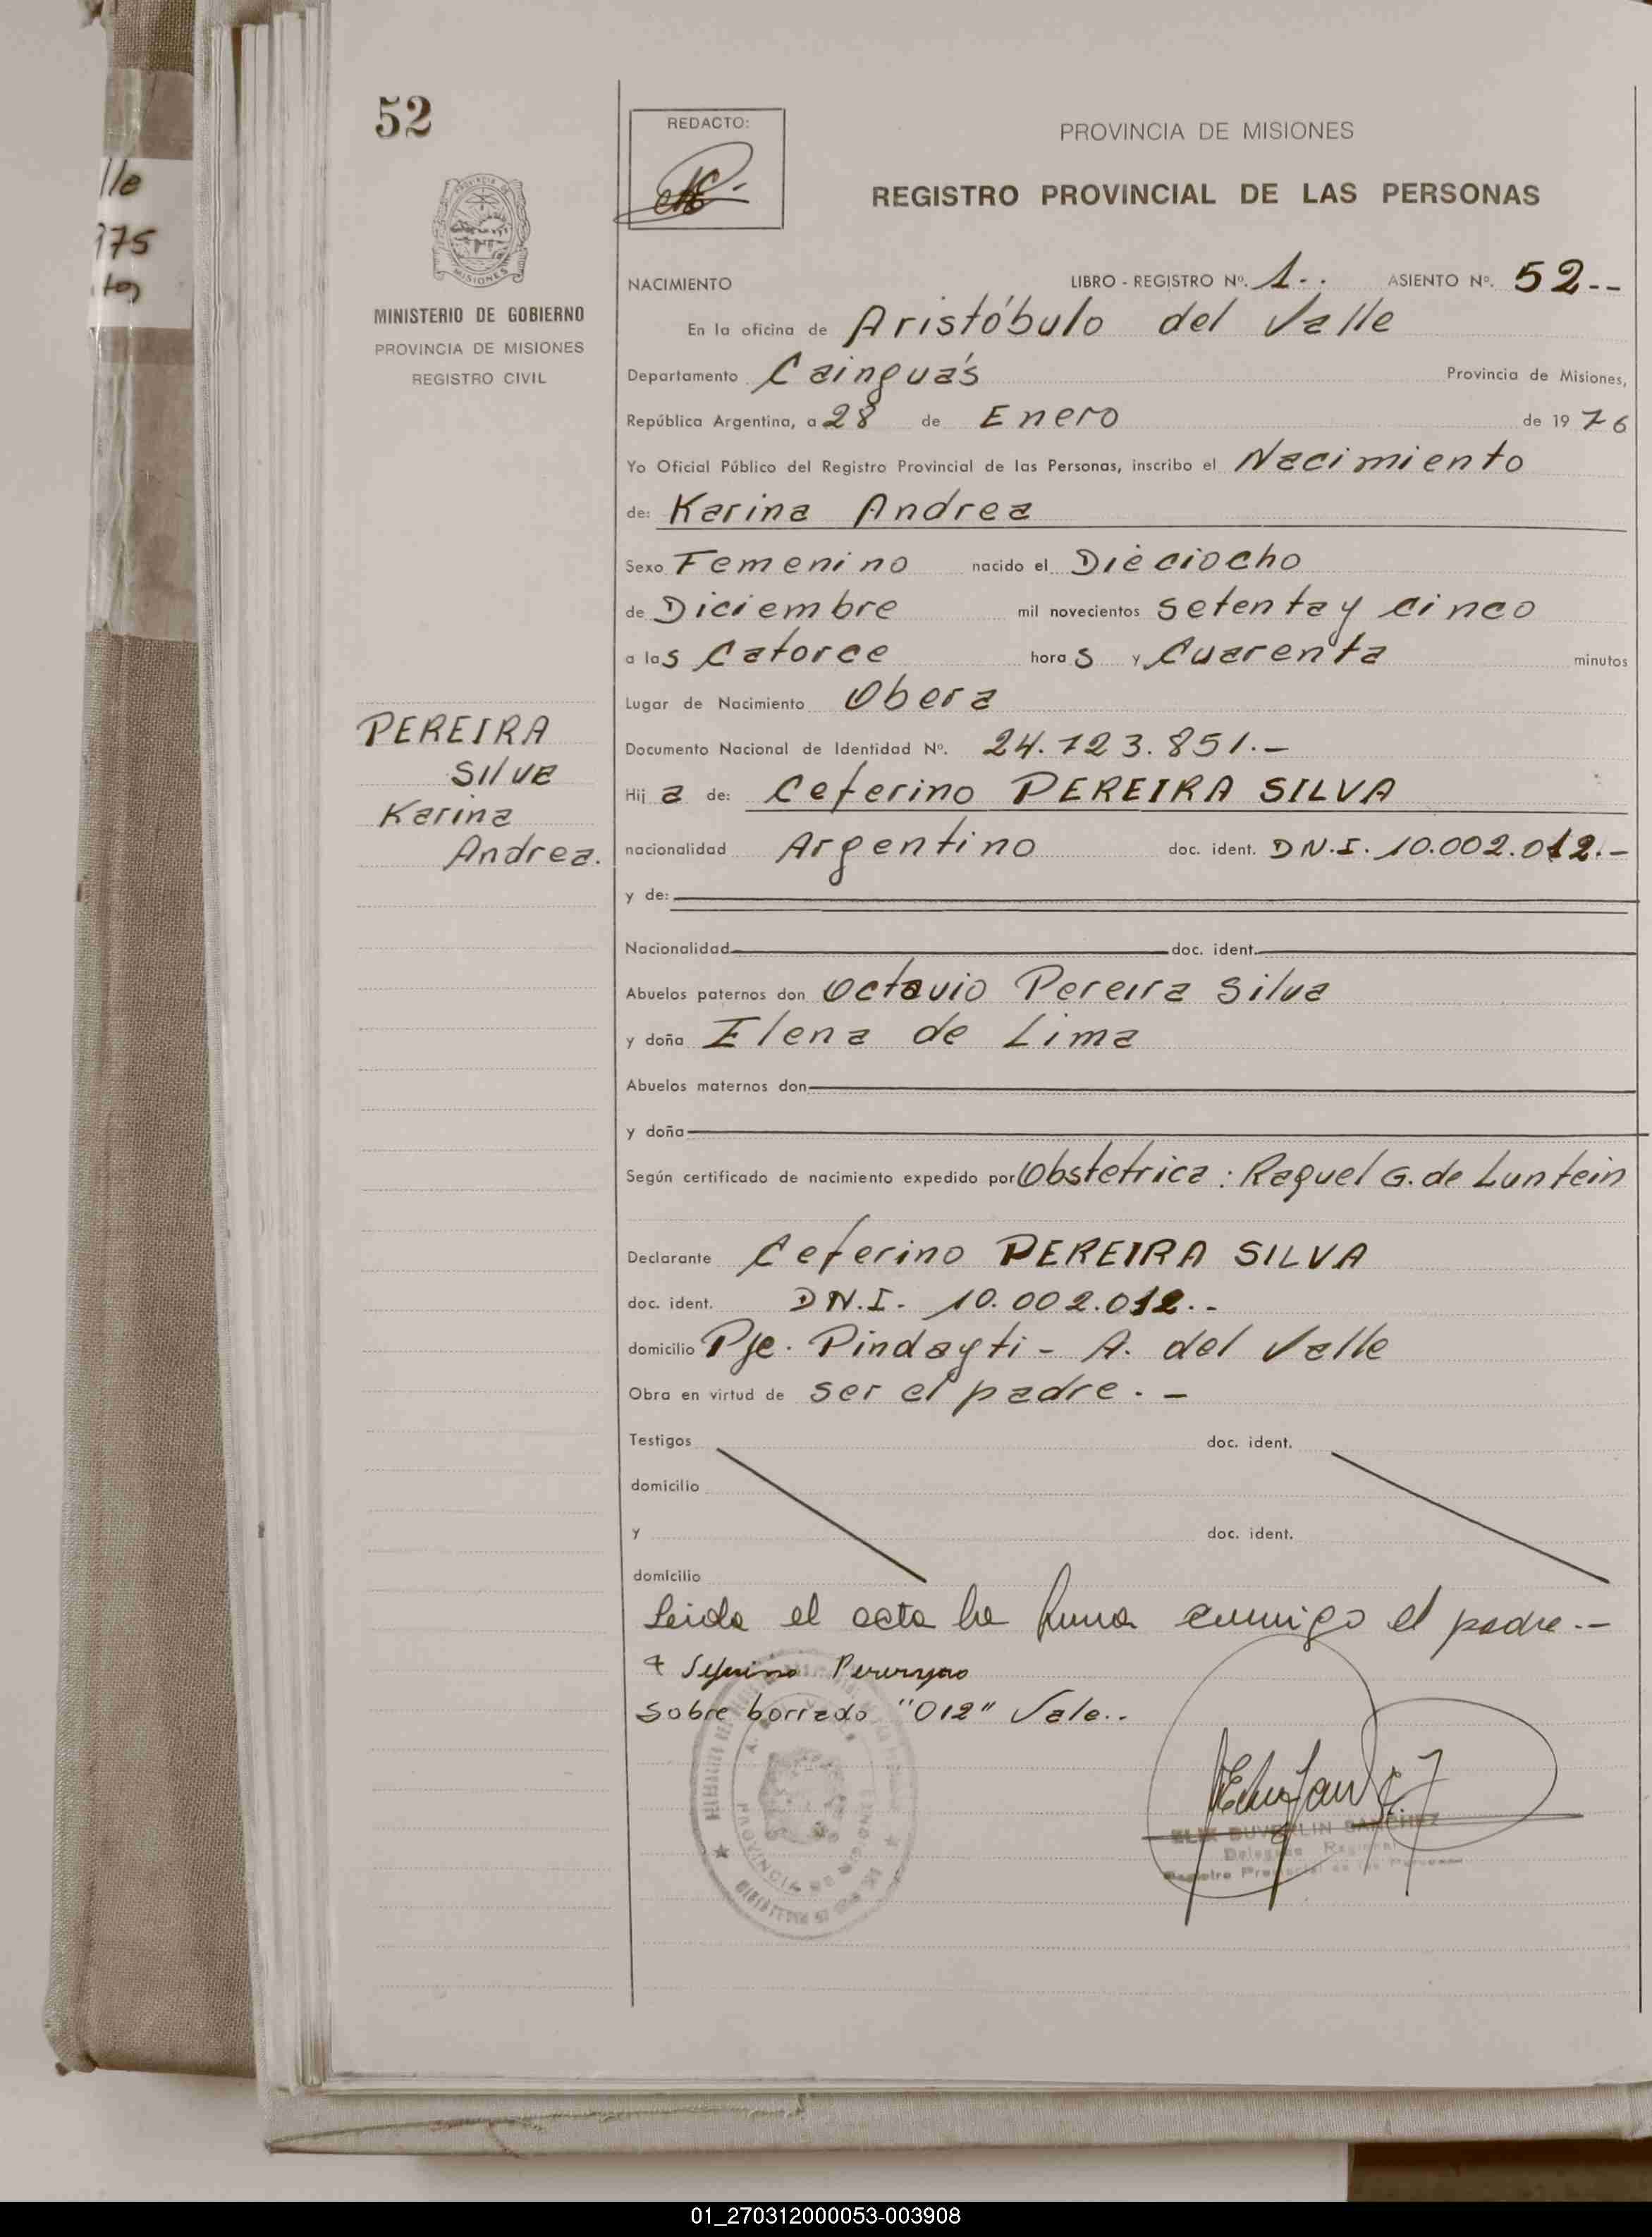 52
lle
975
tos
MINISTERIO DE GOBIERNO
PROVINCIA DE MISIONES
REGISTRO CIVIL
PEREIRA
SILVA
Karina
Andrea.
REDACTO:
PROVINCIA DE MISIONES
REGISTRO PROVINCIAL DE LAS PERSONAS
NACIMIENTO LIBRO - REGISTRO Nº. 1.. ASIENTO Nº. 52--
En la oficina de Aristóbulo del Valle
Departamento Cainguás Provincia de Misiones,
República Argentina, a 28 de Enero de 1976
Yo Oficial Público del Registro Provincial de las Personas, inscribo el Nacimiento
de: Karina Andrea
Sexo Femenino nacido el Dieciocho
de Diciembre mil novecientos setenta y cinco
a las Catorce horas y Cuarenta minutos
Lugar de Nacimiento Obera
Documento Nacional de Identidad Nº. 24.723.851.-
Hija de: Ceferino PEREIRA SILVA
nacionalidad Argentino doc. ident. DN.I. 10.002.012.-
y de:
Nacionalidad doc. ident.
Abuelos paternos don Octavio Pereira Silva
y doña Elena de Lima
Abuelos maternos don
y doña
Según certificado de nacimiento expedido por Obstetrica: Raquel G. de Luntein
Declarante Ceferino PEREIRA SILVA
doc. ident. DN.I. 10.002.012.-
domicilio Pje. Pindayti - A. del Valle
Obra en virtud de ser el padre. -
Testigos doc. ident.
domicilio
y doc. ident.
domicilio
Leida el acta la firma conmigo el padre.-
Sobre borrado "012" Vale..
PROVINCIA DE MISIONES
SANCHEZ
Delegado Regional
Registro Provincial de las Personas
01_270312000053-003908